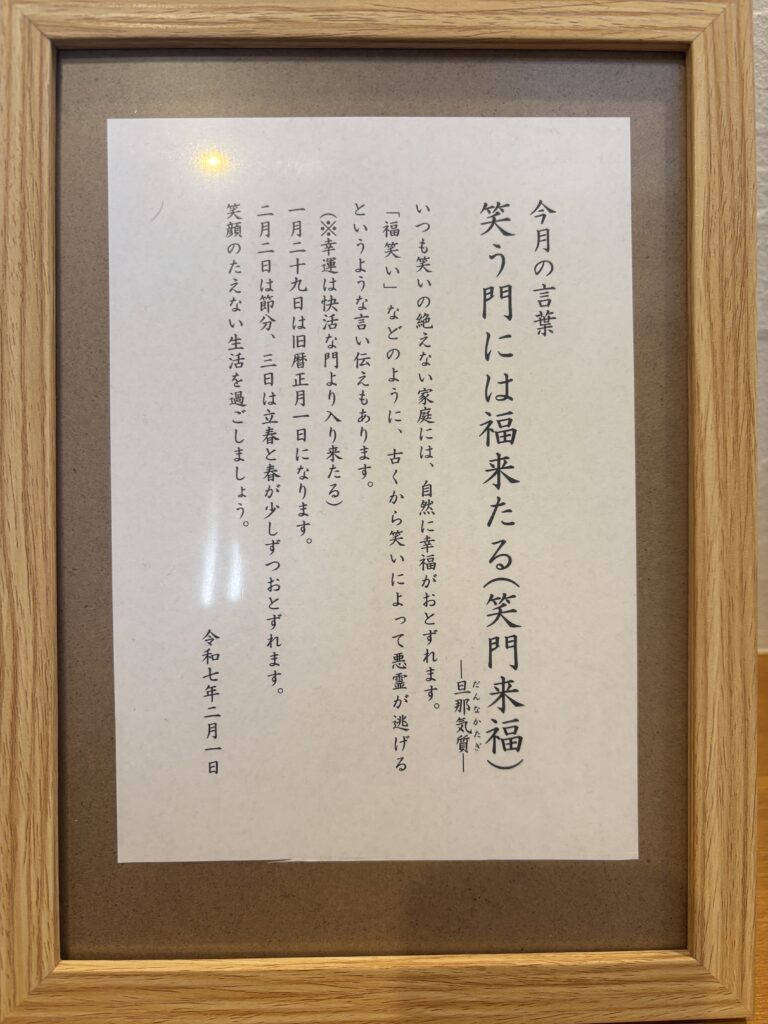 今月の言葉
笑う門には福来たる(笑門来福)
―旦那気質―
だんなかたぎ
いつも笑いの絶えない家庭には、自然に幸福がおとずれます。
「福笑い」などのように、古くから笑いによって悪霊が逃げる
というような言い伝えもあります。
(※幸運は快活な門より入り来たる)
一月二十九日は旧暦正月一日になります。
二月二日は節分、三日は立春と春が少しずつおとずれます。
笑顔のたえない生活を過ごしましょう。
令和七年二月一日